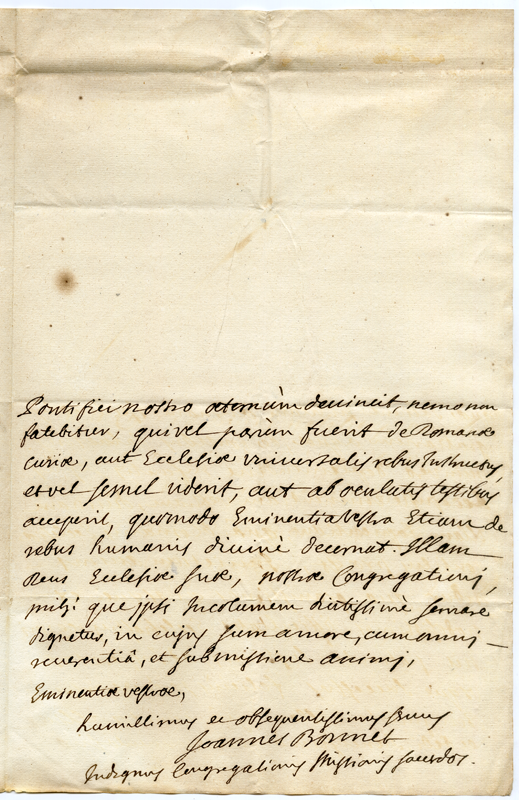 Pontifici nostro æternùm devincit, nemo non
fatebitur, qui vel parùm fuerit de Romanæ
curiæ, aut Ecclesiæ universalis rebus Instructus,
et vel semel viderit, aut ab oculatis testibus
acceperit, quomodo Eminentia vestra Etiam de
rebus humanis divinè decernat. Illam
Deus Ecclesiæ suæ, nostræ Congregationi,
mihi que ipsi Incolumem diutissimè servare
dignetur, in cujus sum amore, cum omni
reverentiâ, et submissione animi,
Eminentiæ vestræ,
humillimus et obsequentissimus servus
Joannes Bonnet
Indignus Congregationis Missionis sacerdos.